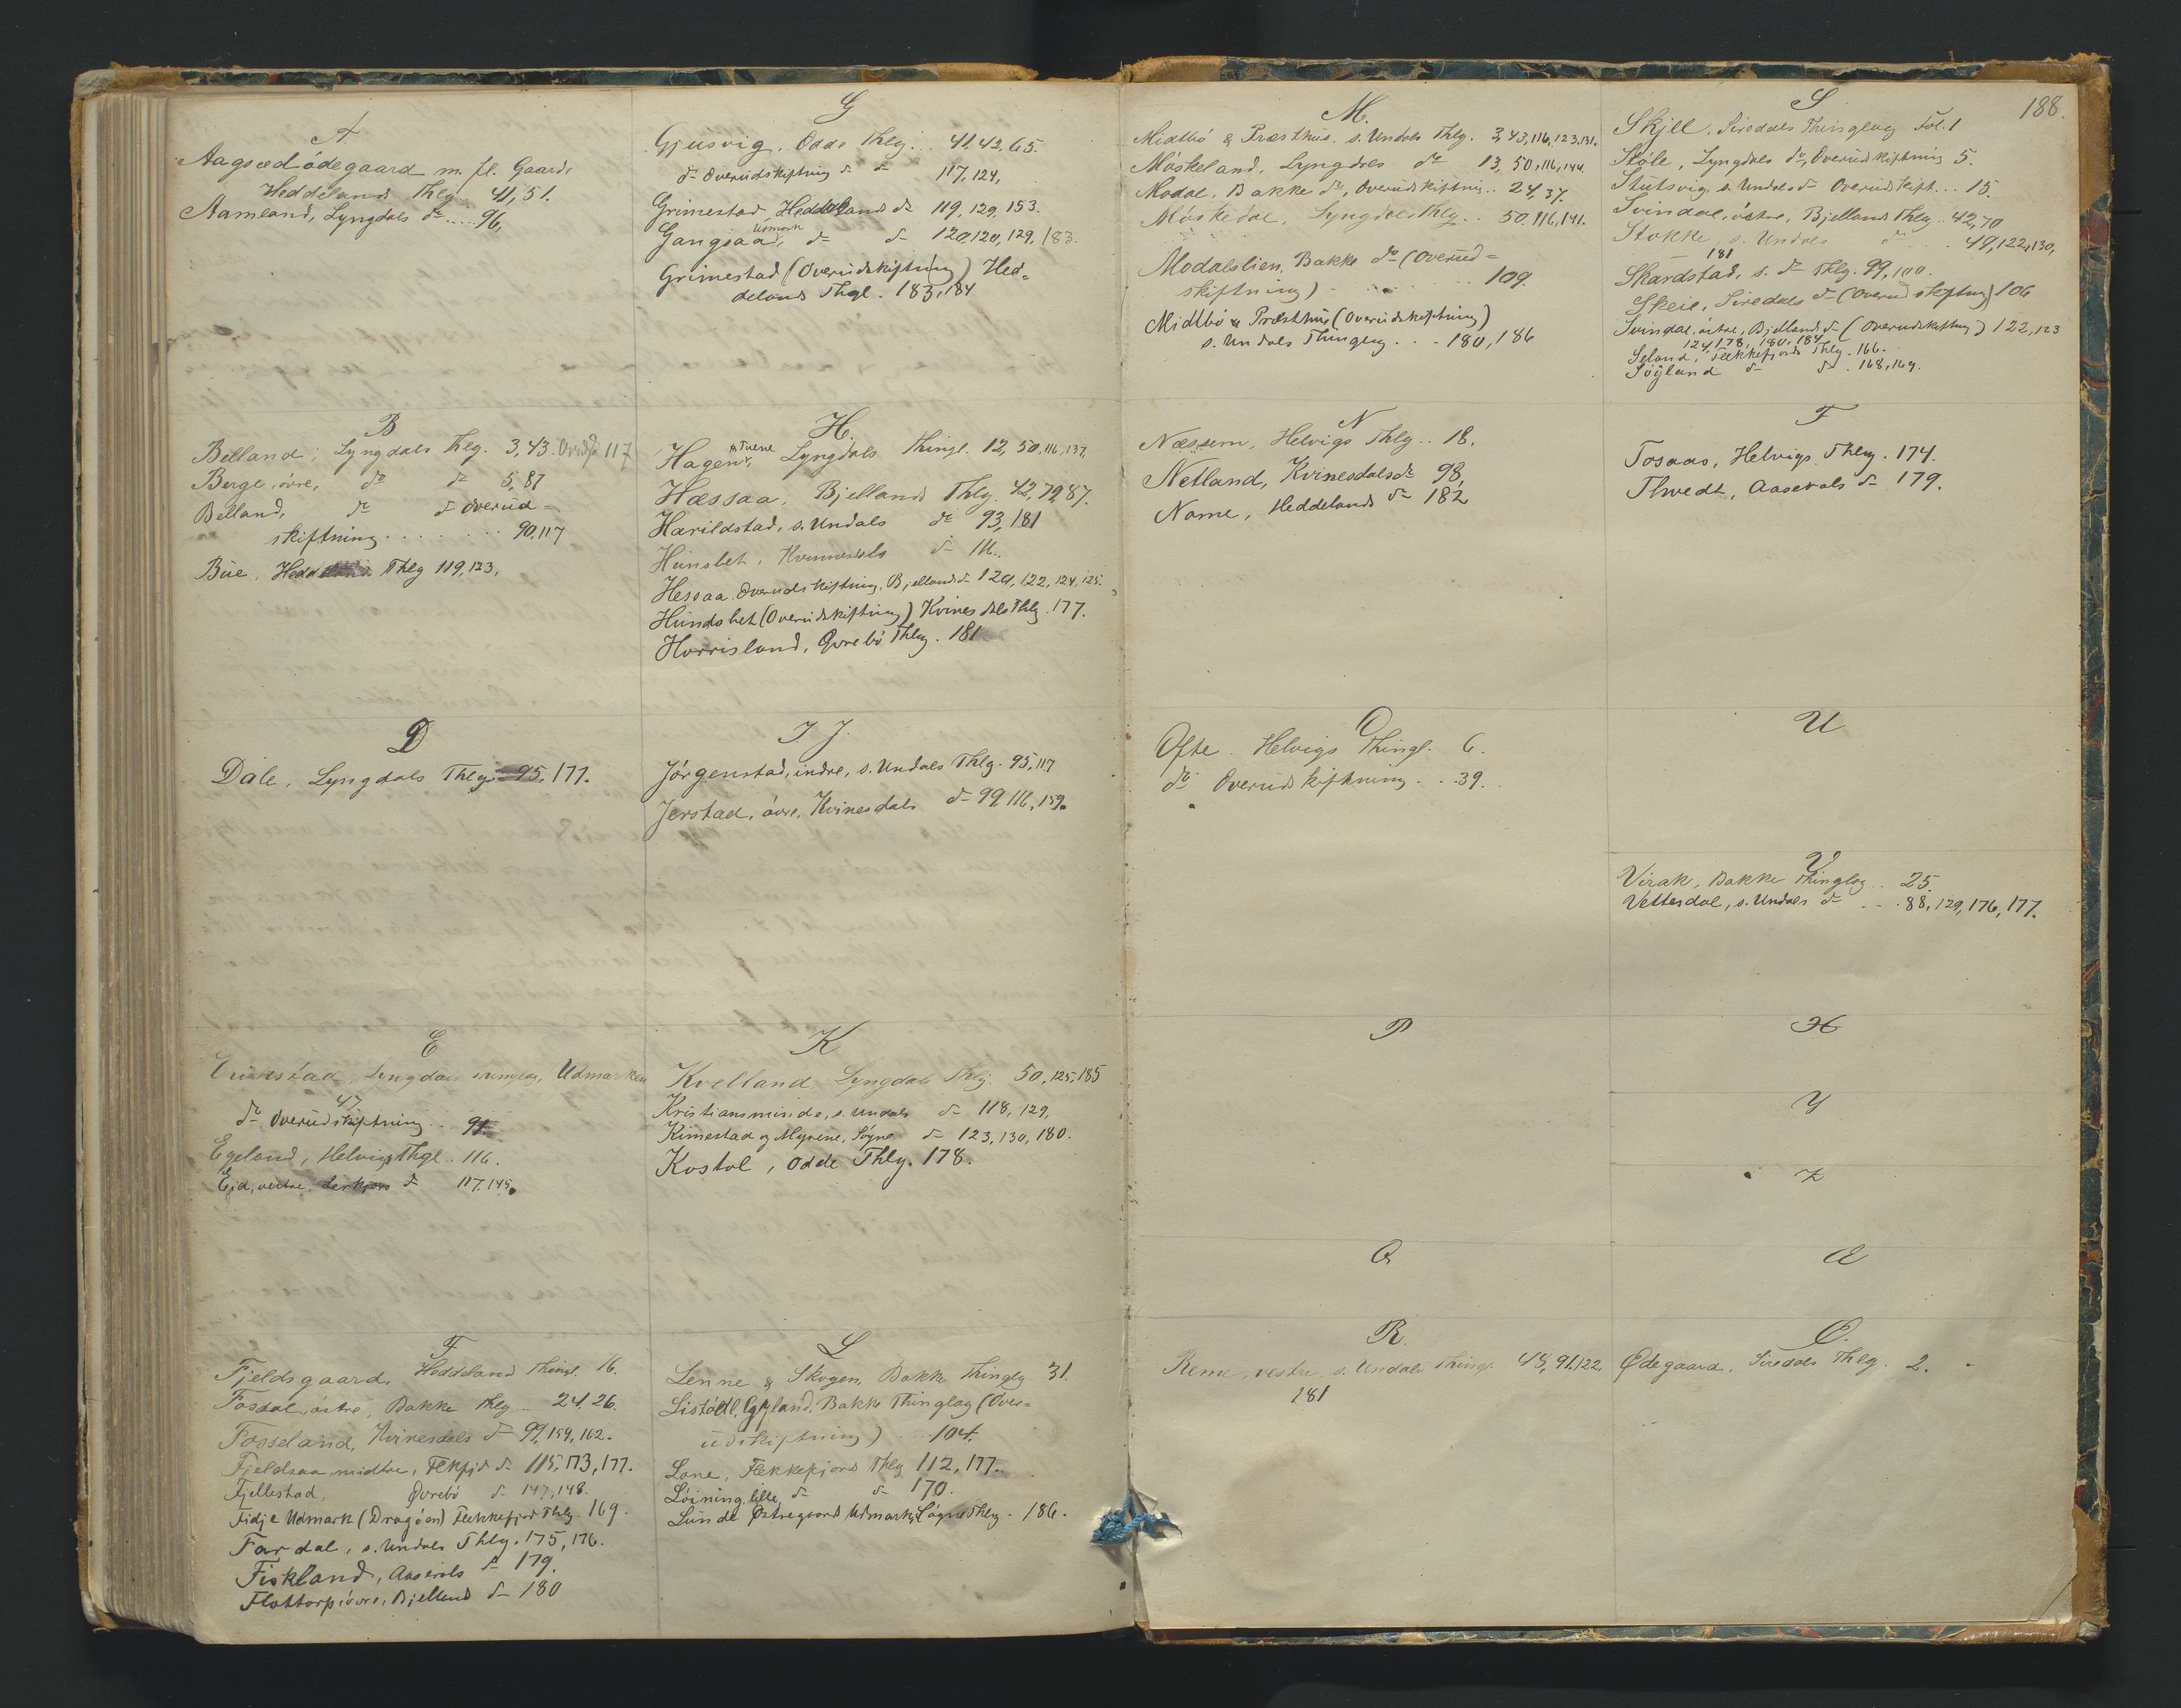 A.
Aagsædødegaard m. fl. Gaarde
Heddelands Thlg. 41, 51.
Aamland, Lyngdals do ..... 96,
B
Belland, Lyngdals Thlg. 3, 43. 117
Berge, øvre, do do 5, 87
Belland, do do Overud=
skiftning . . . . . . . 90, 117
Bue, Heddelands Thlg 119, 123,
D
Dale, Lyngdals Thlg. 95, 177.
E
Lyngdals Udmarken
47
do Overudskiftning ... 91
Egeland, Helvigs Thgl. 116.
Eid, vestre, do 117, 145.
F
Fjeldsgaard, Heddeland Thingl. 16.
Fosdal, østre, Bakke Thlg ... 24, 26.
Fosseland, Kvinesdals do 99, 159, 162.
Fjeldsaa midtre, Flkfjd do 115, 173, 177.
Fjellestad, Øvrebø do 147, 148.
Fidje Udmark (Dragøen) Flekkefjord Thlg. 169.
Fardal, s. Undals Thlg. 175, 176.
Fiskland, Aaserals do 179.
Flottorp, øvre, Bjelland do 180
G
Gjusvig, Odde Thlg. .. 41, 42, 65.
do Overudskiftning do do 117, 124,
Grimestad, Heddelands do 119, 129, 153.
Gangsaa, Udmark do do 120, 120, 129, 183.
Grimestad (Overudskiftning) Hed=
delands Thgl. 183, 184
H.
Hagen m Tuene, Lyngdals Thingl. 12, 50, 116, 137,
Hæssaa, Bjellands Thlg. 42, 79, 87.
Harildstad, s. Undals do 93, 181
Hunsbet, Kvinesdals do 111.
Hessaa Overudskiftning, Bjellands do 120, 122, 124, 125.
Hundsbet (Overudskiftning) Kvinesdals Thlg. 177.
Horrisland, Øvrebø Thlg. 181
I J.
Jørgenstad, indre, s. Undals Thlg. 95, 117
Jerstad, øvre, Kvinesdals do 99, 116, 159.
K
Kvelland, Lyngdals Thlg. 50, 125, 185
Kristiansminde, s. Undals do 118, 129,
Kimestad og Myrene, Søgne do 123, 130, 180.
Kostøl, Odde Thlg. 178.
L
Lenne & Skogen, Bakke Thinglg 31.
Listøl, Gyland, Bakke Thinglag (Over=
udskiftning) ... 104.
Lone, Flekkefjord Thlg 112, 177.
Løining, lille, do do 170.
Lunde Østregaard Udmark, Søgne Thlg. 186.
M.
Midtbø & Præsthus, s. Undals Thlg. 3, 43, 116, 123, 131.
Møskeland, Lyngdals do 13, 50, 116, 144.
Modal, Bakke do, Overudskiftning .. 24, 37.
Møskedal, Lyngdals Thlg .. 50, 116, 141.
Modalslien, Bakke do (Overud=
skiftning) - . . . 109.
Midtbø & Præsthus (Overudskiftning)
s. Undals Thinglag . . - 180, 186
N
Næssem, Helvigs Thlg .. 18.
Netland, Kvinesdals do 98,
Nome, Heddelands do 182
O
Ofte Helvigs Thingl. 6.
do Overudskiftning . . 39.
P
Q
R.
Reme, vestre, s. Undals Thingl. 48, 91, 122,
181
188.
S
Skjell, Siredals Thinglag Fol. 1
Støle, Lyngdals do, Overudskiftning 5.
Stutsvig, s. Undals do Overudskift... 15.
Svindal, østre, Bjellands Thlg .. 42, 70
Stokke, s. Undals do . . . 49, 122, 130,
181
Skardstad, s. do Thlg. 99, 100.
Skeie, Siredals do (Overudskiftning) 106
Svindal, østre, Bjellands do (Overudskiftning) 122, 123
124, 178, 180, 184
Seland, Flekkefjords Thlg. 166.
Søyland do do. 168, 169.
T
Tosaas, Helvigs Thlg. 174.
Thvedt, Aaserals do 179.
U
V
Virak, Bakke Thinglag .. 25.
Vettesdal, s. Undals do . . . 88, 129, 176, 177.
X
Y
Z
Æ
Ø.
Ødegaard, Siredals Thlg. 2.